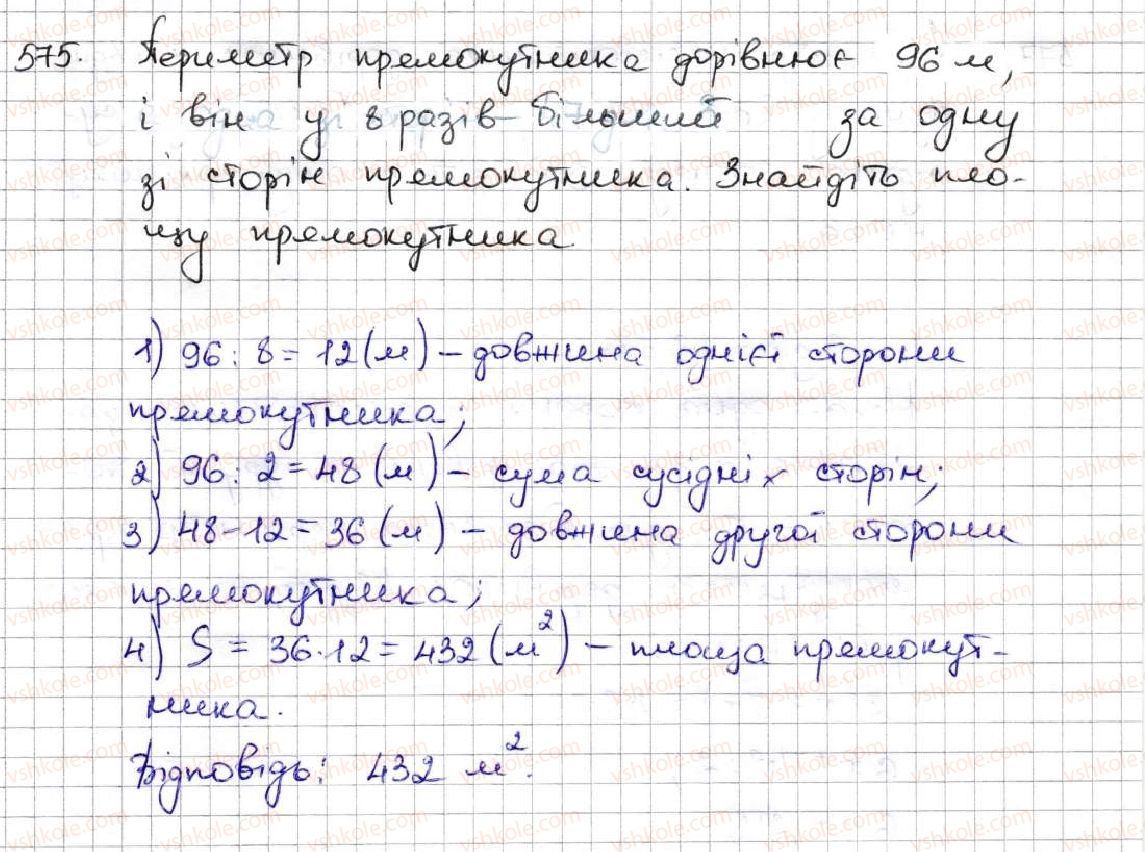 575. Периметр прямокутника дорівнює 96 м,
і він у 8 разів більший за одну
зі сторін прямокутника. Знайдіть пло-
щу прямокутника.
1) 96 : 8 = 12 (м) – довжина однієї сторони
прямокутника;
2) 96 : 2 = 48 (м) – сума сусідніх сторін;
3) 48 – 12 = 36 (м) – довжина другої сторони
прямокутника;
4) S = 36 · 12 = 432 (м²) – площа прямокут-
ника.
Відповідь: 432 м².